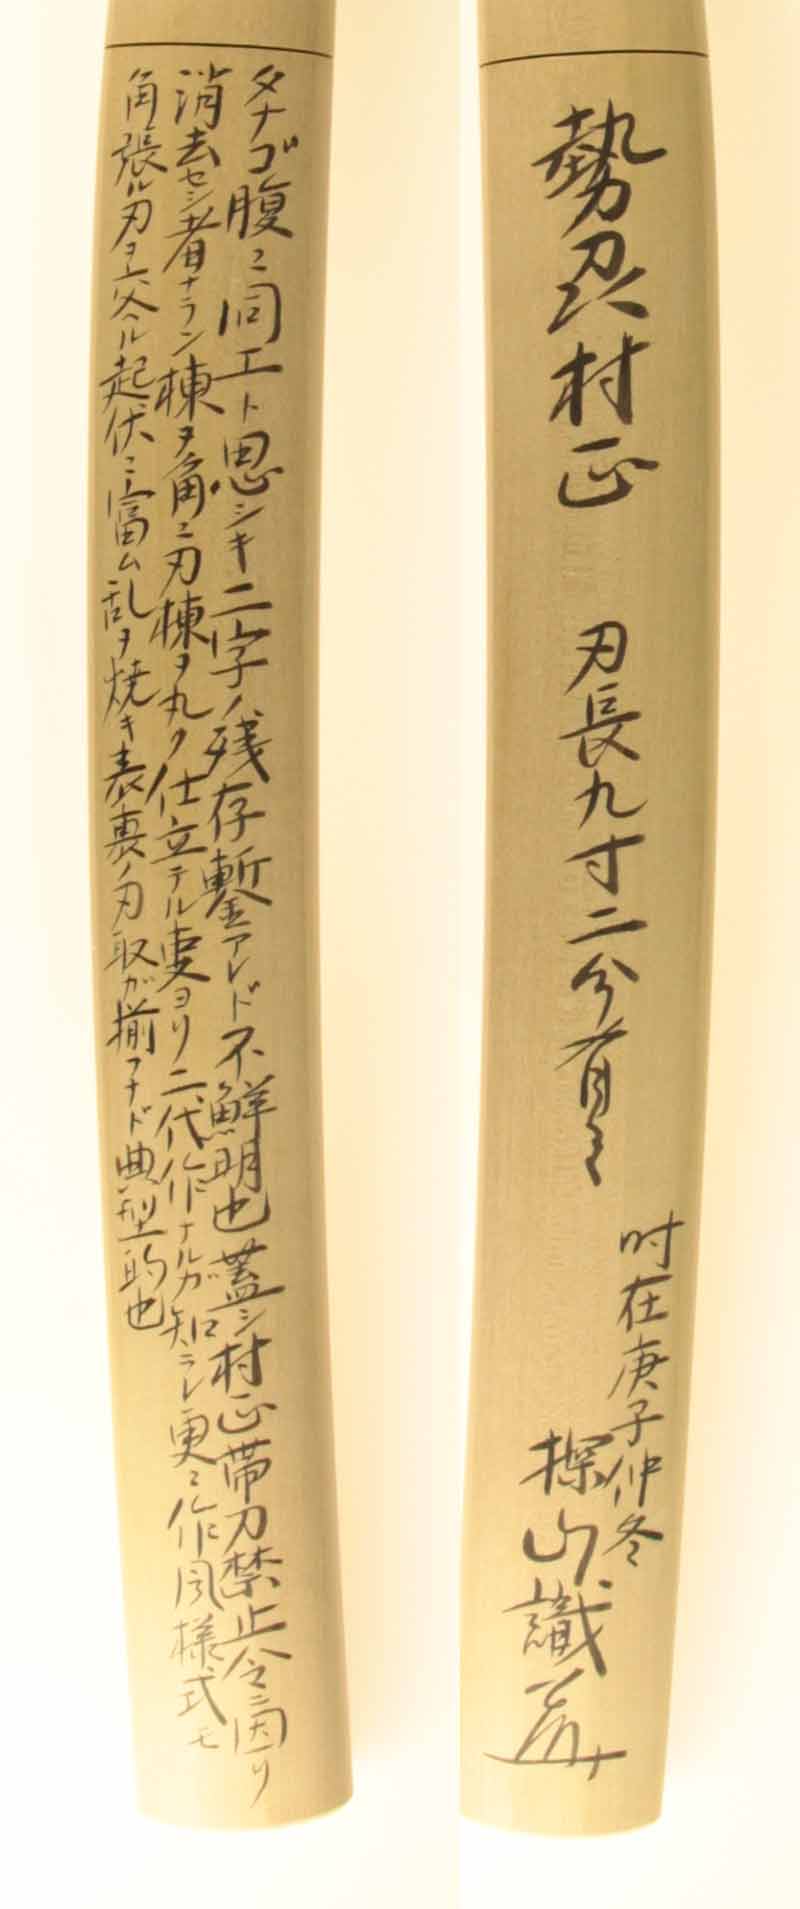 タナゴ腹ニ同工ト思シキ二字ノ残存鏨アレド不鮮明也蓋シ村正帯刀禁止令ニ因リ
消去セシ者ナラン棟ヲ角ニ刃棟ヲ丸ク仕立テル事ヨリ二代作ナルガ知ラレ更ニ作風様式モ
角張ル刃ヲ交ヘル起伏ニ富ム乱ヲ焼キ表裏ノ刃取ガ揃フナド典型的也
勢刕村正
刃長九寸二分有之
吋在庚子仲冬
探山識